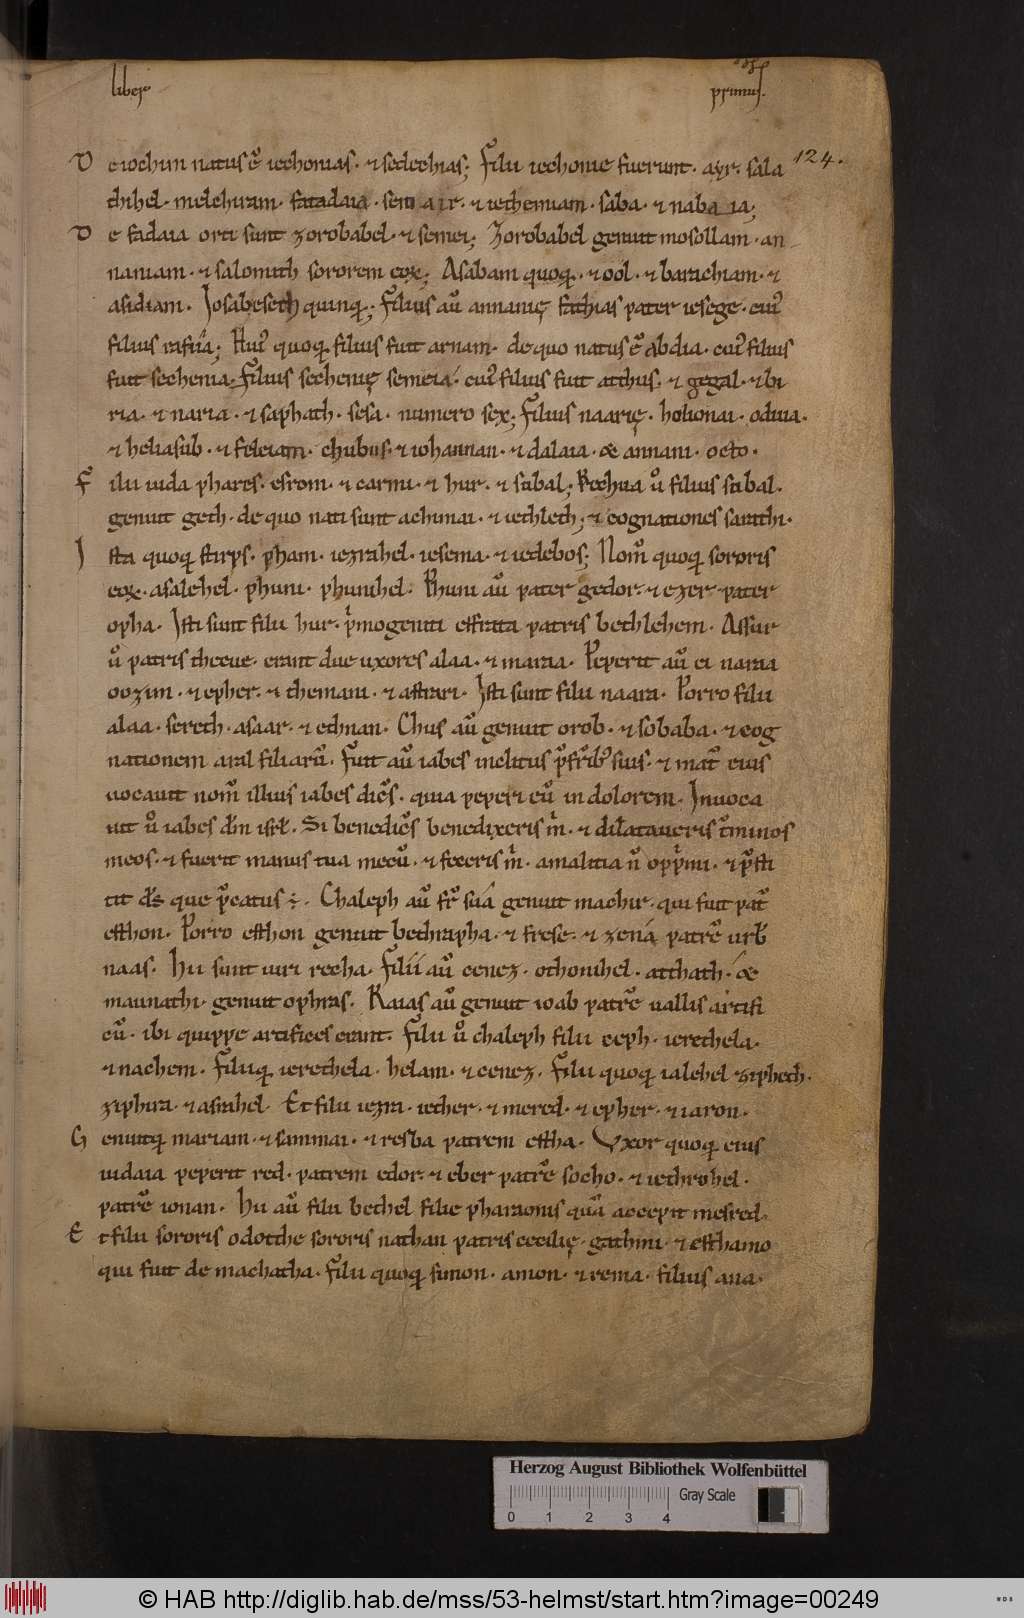 liber primus.
124.
De iochim natus ē iechonias. ⁊ sedechias; Filii iechonie fuerunt. ayr. sala
thihel. melchiram. fatadaia. sen ir. ⁊ iechemiam. saba. ⁊ nabadia;
De fadaia orti sunt zorobabel. ⁊ semei; Zorobabel genuit mosollam. an
naniam. ⁊ salomith sororem eoꝝ; Asabam quoqꝫ. ⁊ ool. ⁊ barachiam. ⁊
asadiam. Iosabeseth quinqꝫ; Filius aū ananię falthias pater iesege. cui᷒
filius rafaia; Hui᷒ quoqꝫ filius fuit arnam. de quo natus ē abdia. cui᷒ filius
fuit sechenia. Filius sechenię semeia. cui᷒ filius fuit atthus. ⁊ gegal. ⁊ bi
ria. ⁊ naria. ⁊ saphath. sesa. numero sex; Filius naarię. helionai. oduia.
⁊ heliasub. ⁊ feleiam. chubus. ⁊ iohannan. ⁊ dalaia. & annani. octo.
Filii iuda phares. esrom. ⁊ carmi. ⁊ hur. ⁊ subal; Rechua ů filius subal.
genuit geth. de quo nati sunt achimai. ⁊ iethleth; ⁊ cognationes sarathi.
Ista quoqꝫ stirps. etham. iezrahel. iesema. ⁊ iedebos; Nom̄ quoqꝫ sororis
eoꝝ. asalehel. phuni. phunihel. Phuni aū pater gedor. ⁊ ezer pater
opha. Isti sunt filii hur. pͥmogeniti effrata patris bethlehem. Assur
ů patris thecue. erant due uxores alaa. ⁊ maria. Peperit aū ei naria
oozim. ⁊ epher. ⁊ themani. ⁊ astrari. Isti sunt filii naara. Porro filii
alaa. sereth. asaar. ⁊ ethnan. Chus aū genuit orob. ⁊ sobaba. ⁊ cog
nationem aral filiarū. Fuit aū iabes inclitus p̄ fr̄ibꝫ suis. ⁊ mat̄ eius
uocauit nom̄ illius iabes dic̄s. quia peperi eū in dolorem. Inuoca
uit ů iabes dm̄ isrl̄. Si benedic̄s benedixeris m̄. ⁊ dilataueris t̄minos
meos. ⁊ fuerit manus tua mecū. ⁊ feceris m̄. a malitia n̄ oppͥmi. ⁊ p̄sti
tit ds̄ que p̄catus ÷. Chaleph aū fr̄ sua genuit machir. qui fuit pat̄
esthon. Porro esthon genuit bethrapha. ⁊ fese. ⁊ zena patrē urb̄
naas. Hii sunt uiri recha. Filii aū cenez. othonihel. atthath. &
maunathi. genuit ophras. Raias aū genuit ioab patrē uallis artifi
cū. ibi quippe artifices erant. Filii ů chaleph filii ieeph. ierethela.
⁊ nachem. Filiiqꝫ ierethela. helam. ⁊ cenez. Filii quoqꝫ ialehel ziphech.
ziphira. ⁊ asrahel. Et filii iezra. iether. ⁊ mered. ⁊ epher. ⁊ iaron.
Genuitqꝫ mariam. ⁊ sammai. ⁊ resba patrem estha. Vxor quoqꝫ eius
iudaia peperit red. patrem edor. ⁊ eber patrē socho. ⁊ iethrohel.
patrē ionan. Hii aū filii bethel filie pharaonis quā accepit mesred.
Et filii sororis odotthe sororis nathan patris cecilię. gathini. ⁊ esthamo
qui fuit de machatha. Filii quoqꝫ simon. amon. ⁊ rema. filius ana.
Herzog August Bibliothek Wolfenbüttel
Gray Scale
0 1 2 3 4
© HAB http://diglib.hab.de/mss/53-helmst/start.htm?image=00249